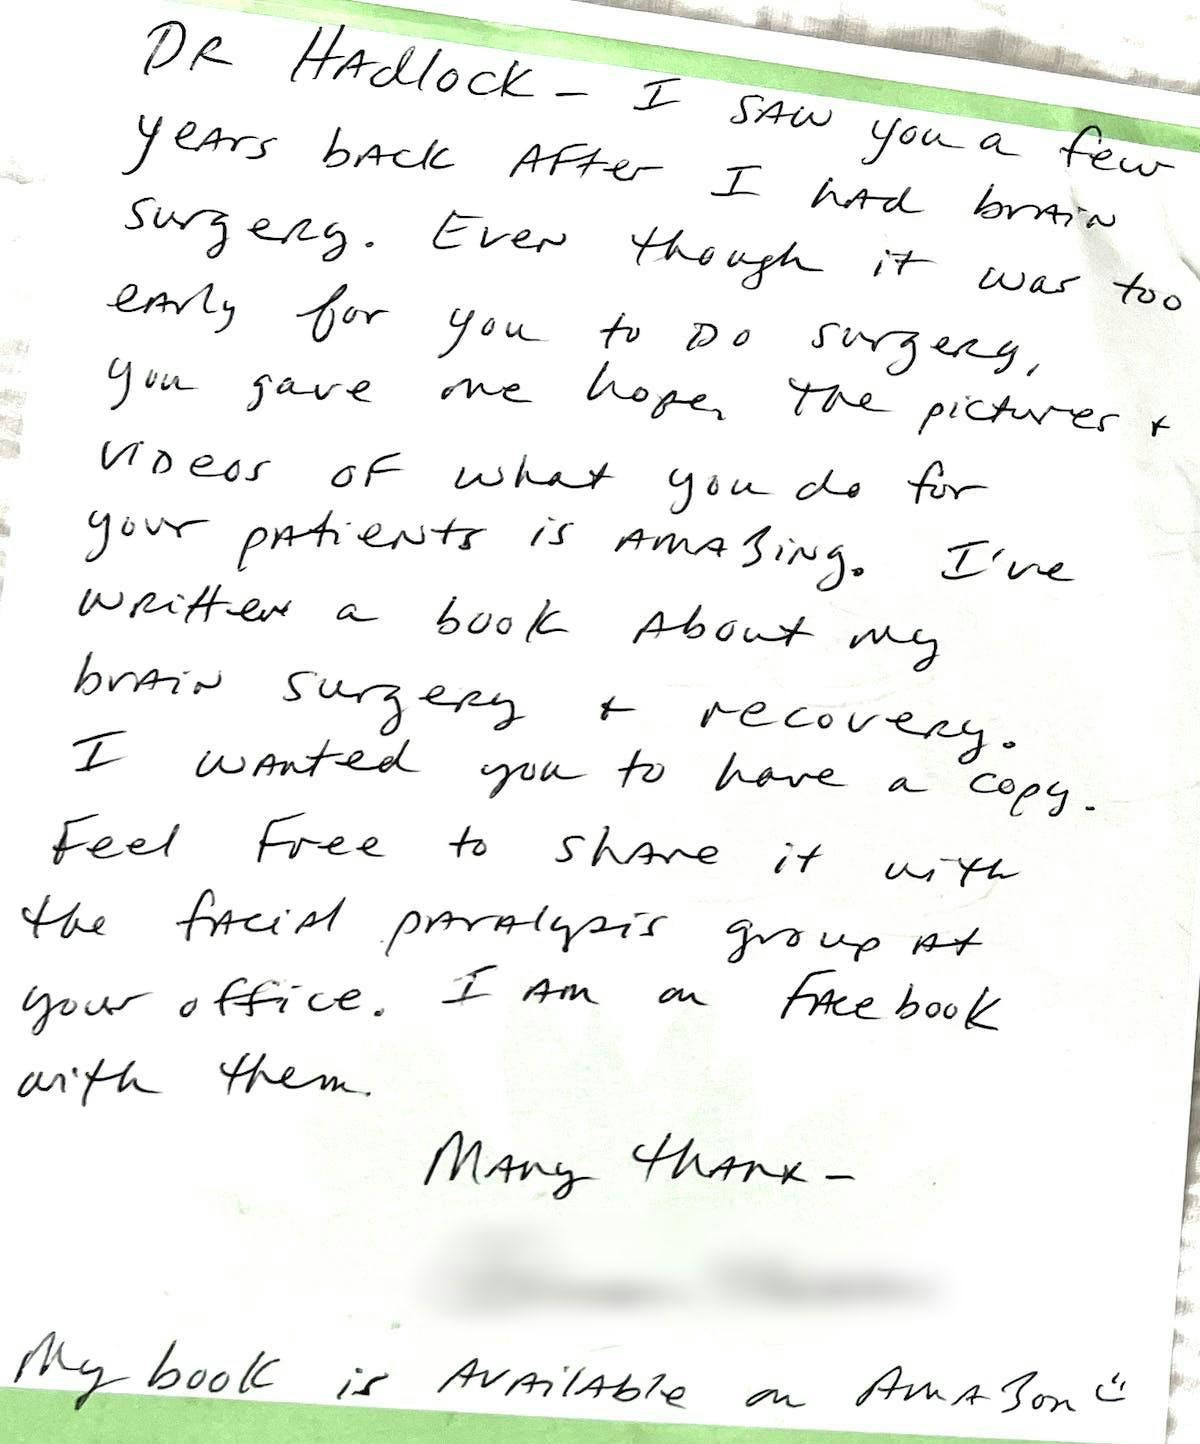 DR HAdlock - I SAW you a few
years bAck After I hAd brAiN
surgeRy. EveN though it was too
eArly for you to Do surgeRy,
you gave me hope. The pictures +
viDeos of what you do for
your pAtieNts is AMAZiNg. I've
wRitten a book About my
brAiN surgeRy + recoveRy.
I wAnted you to have a copy.
Feel Free to shAre it with
the fAciAl pArAlysis group At
your office. I Am on FAcebook
with them.
MANy thANk -
My book is AvAilAble on AmAZon ☺